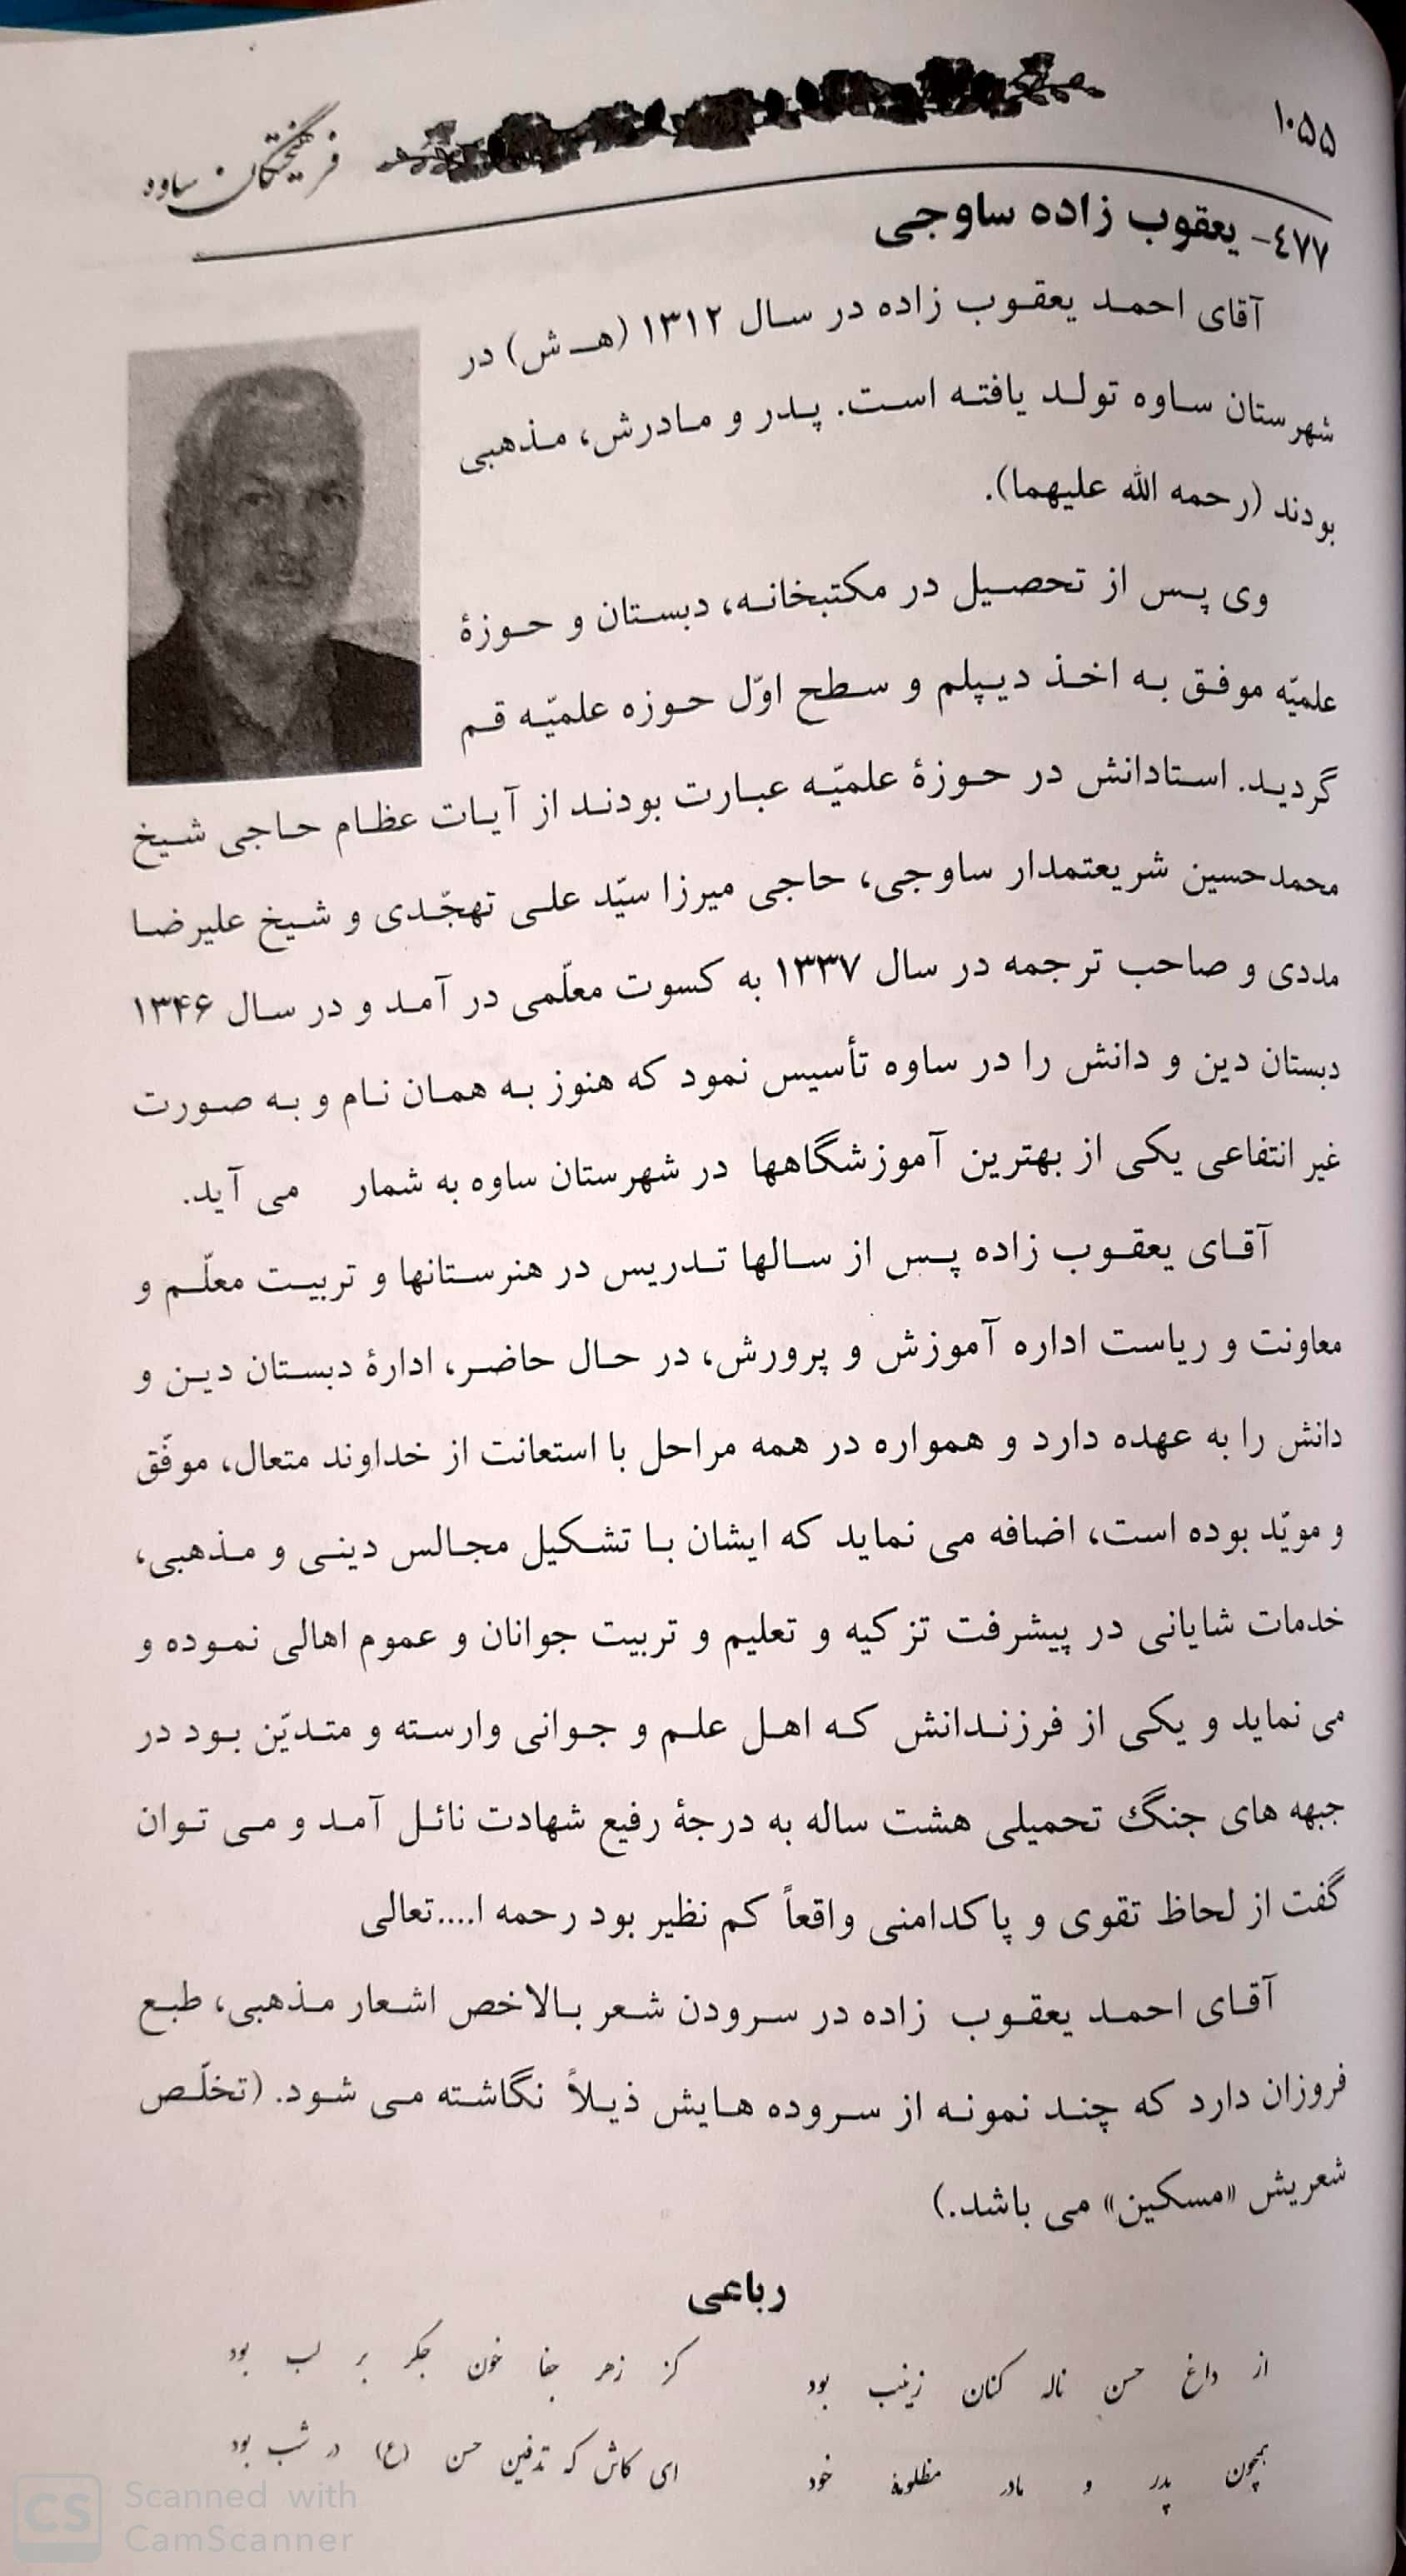 ۱۰۵۵
فرهیختگان ساوه
۴۷۷- یعقوب زاده ساوجی
آقای احمد یعقوب زاده در سال ۱۳۱۲ (هـ ش) در
شهرستان ساوه تولد یافته است. پدر و مادرش، مذهبی
بودند (رحمه الله علیهما).
وی پس از تحصیل در مکتبخانه، دبستان و حوزۀ
علمیّه موفق به اخذ دیپلم و سطح اوّل حوزه علمیّه قم
گردید. استادانش در حوزۀ علمیّه عبارت بودند از آیات عظام حاجی شیخ
محمدحسین شریعتمدار ساوجی، حاجی میرزا سیّد علی تهجّدی و شیخ علیرضا
مددی و صاحب ترجمه در سال ۱۳۳۷ به کسوت معلّمی در آمد و در سال ۱۳۴۶
دبستان دین و دانش را در ساوه تأسیس نمود که هنوز به همان نام و به صورت
غیر انتفاعی یکی از بهترین آموزشگاهها در شهرستان ساوه به شمار می آید.
آقای یعقوب زاده پس از سالها تدریس در هنرستانها و تربیت معلّم و
معاونت و ریاست اداره آموزش و پرورش، در حال حاضر، ادارۀ دبستان دین و
دانش را به عهده دارد و همواره در همه مراحل با استعانت از خداوند متعال، موفّق
و مویّد بوده است، اضافه می نماید که ایشان با تشکیل مجالس دینی و مذهبی،
خدمات شایانی در پیشرفت تزکیه و تعلیم و تربیت جوانان و عموم اهالی نموده و
می نماید و یکی از فرزندانش که اهل علم و جوانی وارسته و متدیّن بود در
جبهه های جنگ تحمیلی هشت ساله به درجۀ رفیع شهادت نائل آمد و می توان
گفت از لحاظ تقوی و پاکدامنی واقعاً کم نظیر بود رحمه ا....تعالی
آقای احمد یعقوب زاده در سرودن شعر بالاخص اشعار مذهبی، طبع
فروزان دارد که چند نمونه از سروده هایش ذیلاً نگاشته می شود. (تخلّص
شعریش «مسکین» می باشد.)
رباعی
از داغ حسن ناله کنان زینب بود کز زهر جفا خون جگر بر لب بود
همچون پدر و مادر مظلومۀ خود ای کاش که تدفین حسن (ع) در شب بود
CS Scanned with
CamScanner